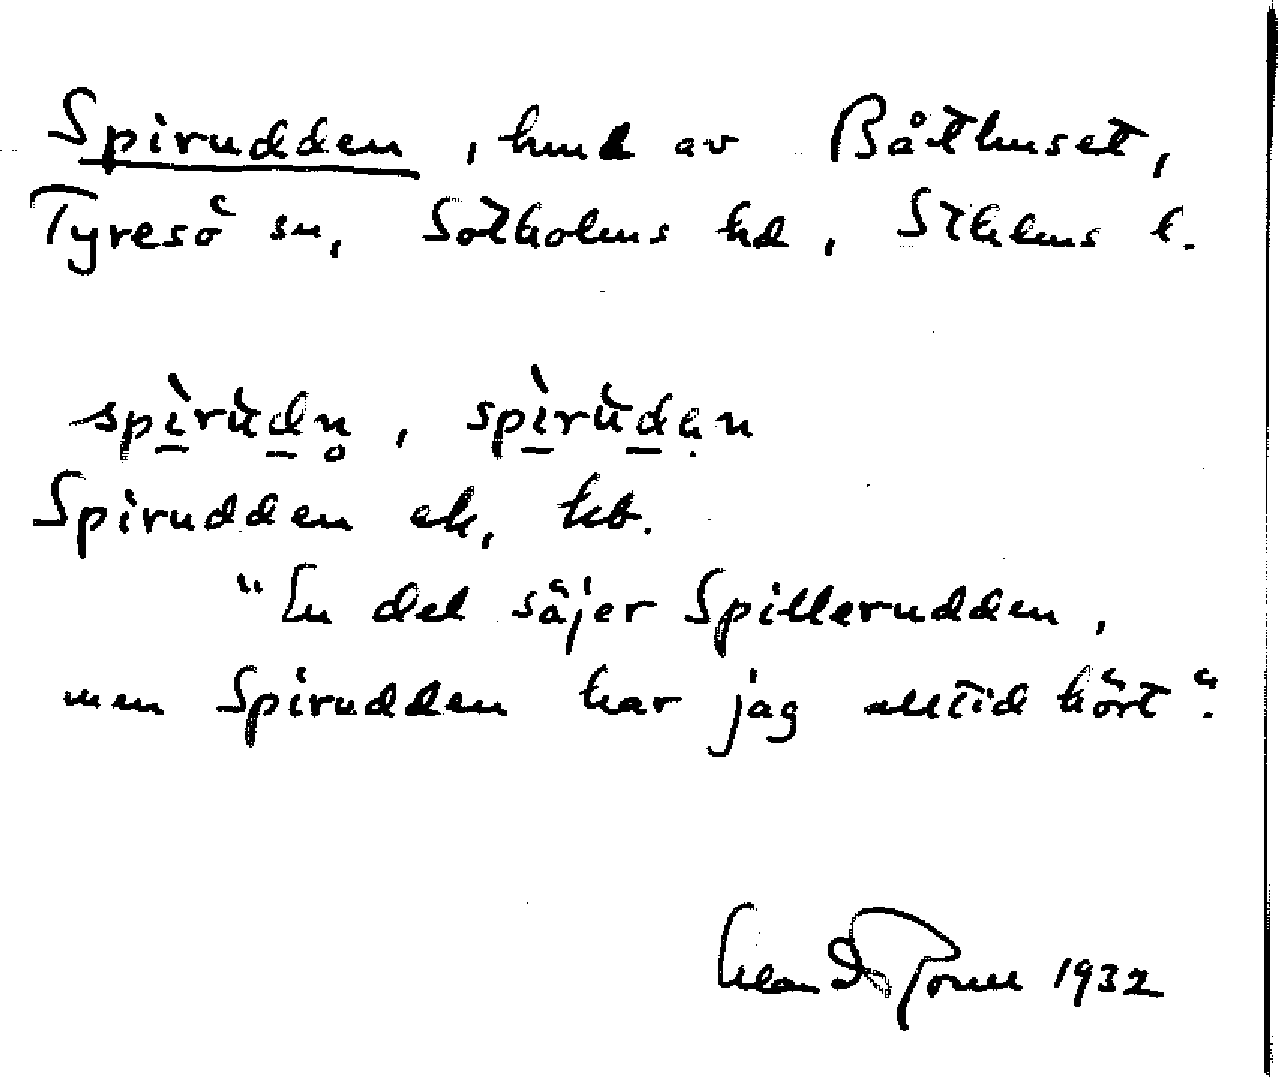 Spirudden, hmd av Båthuset,
Tyresö sn, Sotholms hd, Sthlms l.
spìrùdn̥, spìrùdən
Spirudden ek, kb.
"En del säjer Spillerudden,
men Spirudden har jag alltid hört".
1932